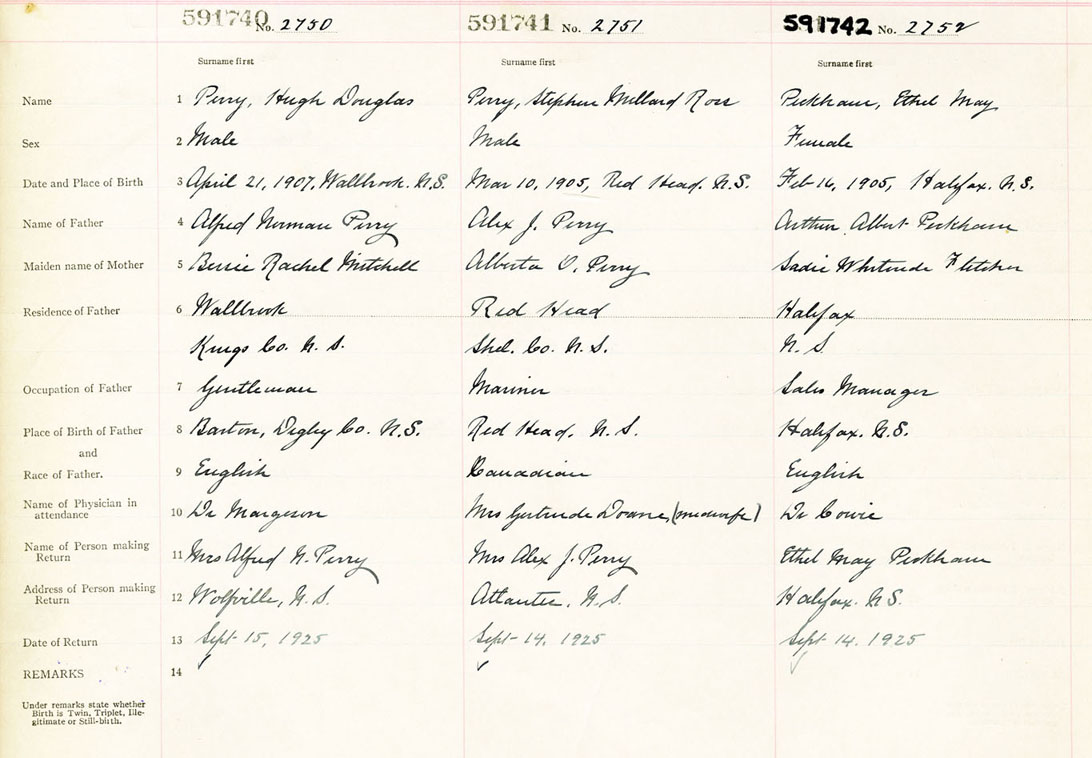 591740 No. 2750 591741 No. 2751 591742 No. 2752
Surname first Surname first Surname first
Name 1 Perry, Hugh Douglas Perry, Stephen Millard Ross Peckham, Ethel May
Sex 2 Male Male Female
Date and Place of Birth 3 April 21, 1907, Wallbrook. N.S. Mar 10, 1905, Red Head. N.S. Feb 16, 1905, Halifax. N.S.
Name of Father 4 Alfred Norman Perry Alex J. Perry Arthur Albert Peckham
Maiden name of Mother 5 Bessie Rachel Mitchell Alberta O. Perry Sadie Fletcher
Residence of Father 6 Wallbrook Red Head Halifax
Kings Co. N.S. Shel. Co. N.S. N.S.
Occupation of Father 7 Gentleman Mariner Sales Manager
Place of Birth of Father 8 Barton, Digby Co. N.S. Red Head. N.S. Halifax. N.S.
and
Race of Father. 9 English Canadian English
Name of Physician in
attendance 10 Dr Margeson Mrs Gertrude Doane, (midwife) Dr Cowie
Name of Person making
Return 11 Mrs Alfred N. Perry Mrs Alex J. Perry Ethel May Peckham
Address of Person making
Return 12 Wolfville, N.S. Atlantic, N.S. Halifax. N.S.
Date of Return 13 Sept 15, 1925 Sept 14, 1925 Sept 14. 1925
REMARKS 14
Under remarks state whether
Birth is Twin, Triplet, Ille-
gitimate or Still-birth.